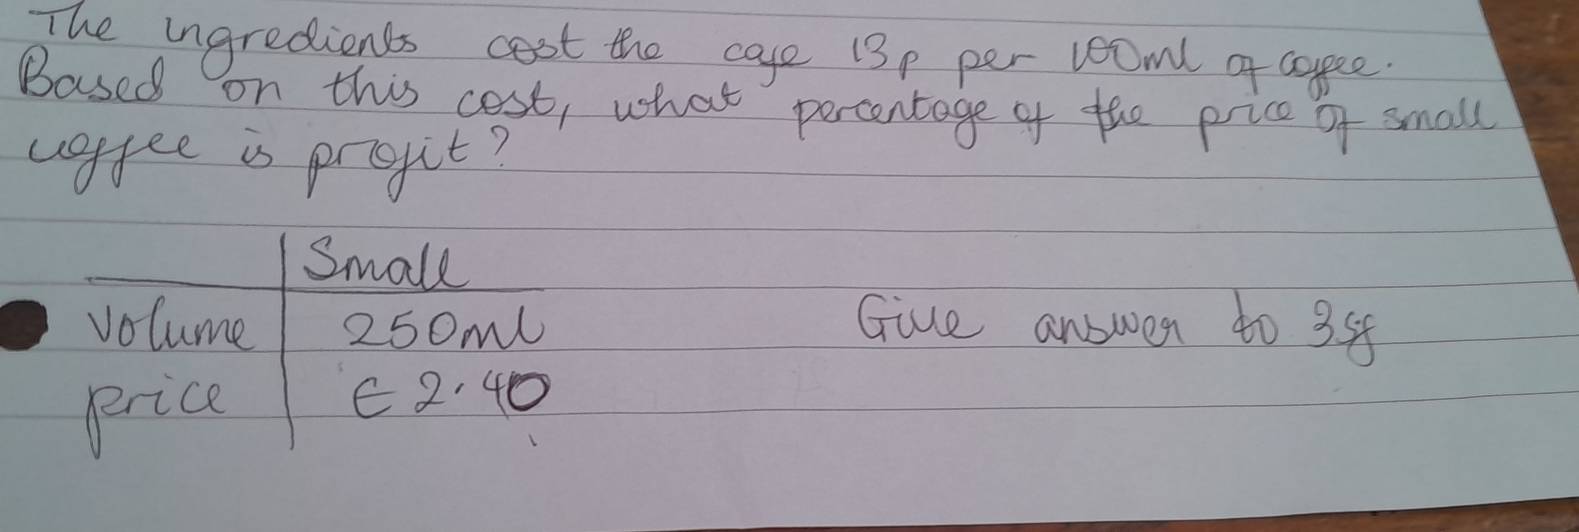 The ingredients cost the cafe 13p per 100ml of coffee.
Based on this cost, what percentage of the price of small
coffee is profit?
Small
volume 250ml
Give answer to 3sf
price £2.40